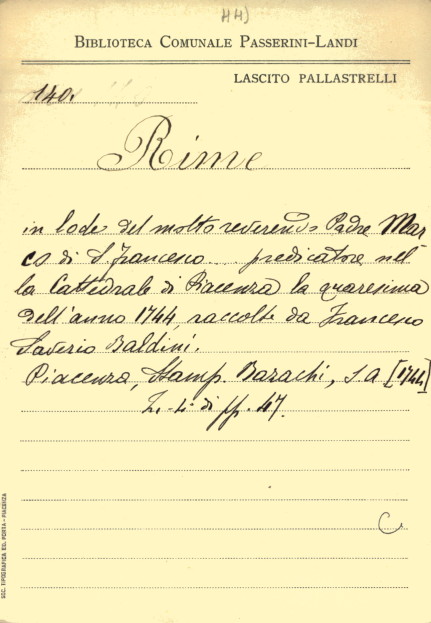 44)
BIBLIOTECA COMUNALE PASSERINI-LANDI
LASCITO PALLASTRELLI
140.
Rime
in lode del molto reverendo Padre Mar
co di S. Francesco.... predicatore nel
la Cattedrale di Piacenza la quaresima
dell'anno 1744, raccolte da Francesco
Saverio Baldini.
Piacenza, Stamp. Bazachi, s. a [1744]
in-4° di pp. 47.
C
SOC. TIPOGRAFICA ED. PORTA - PIACENZA